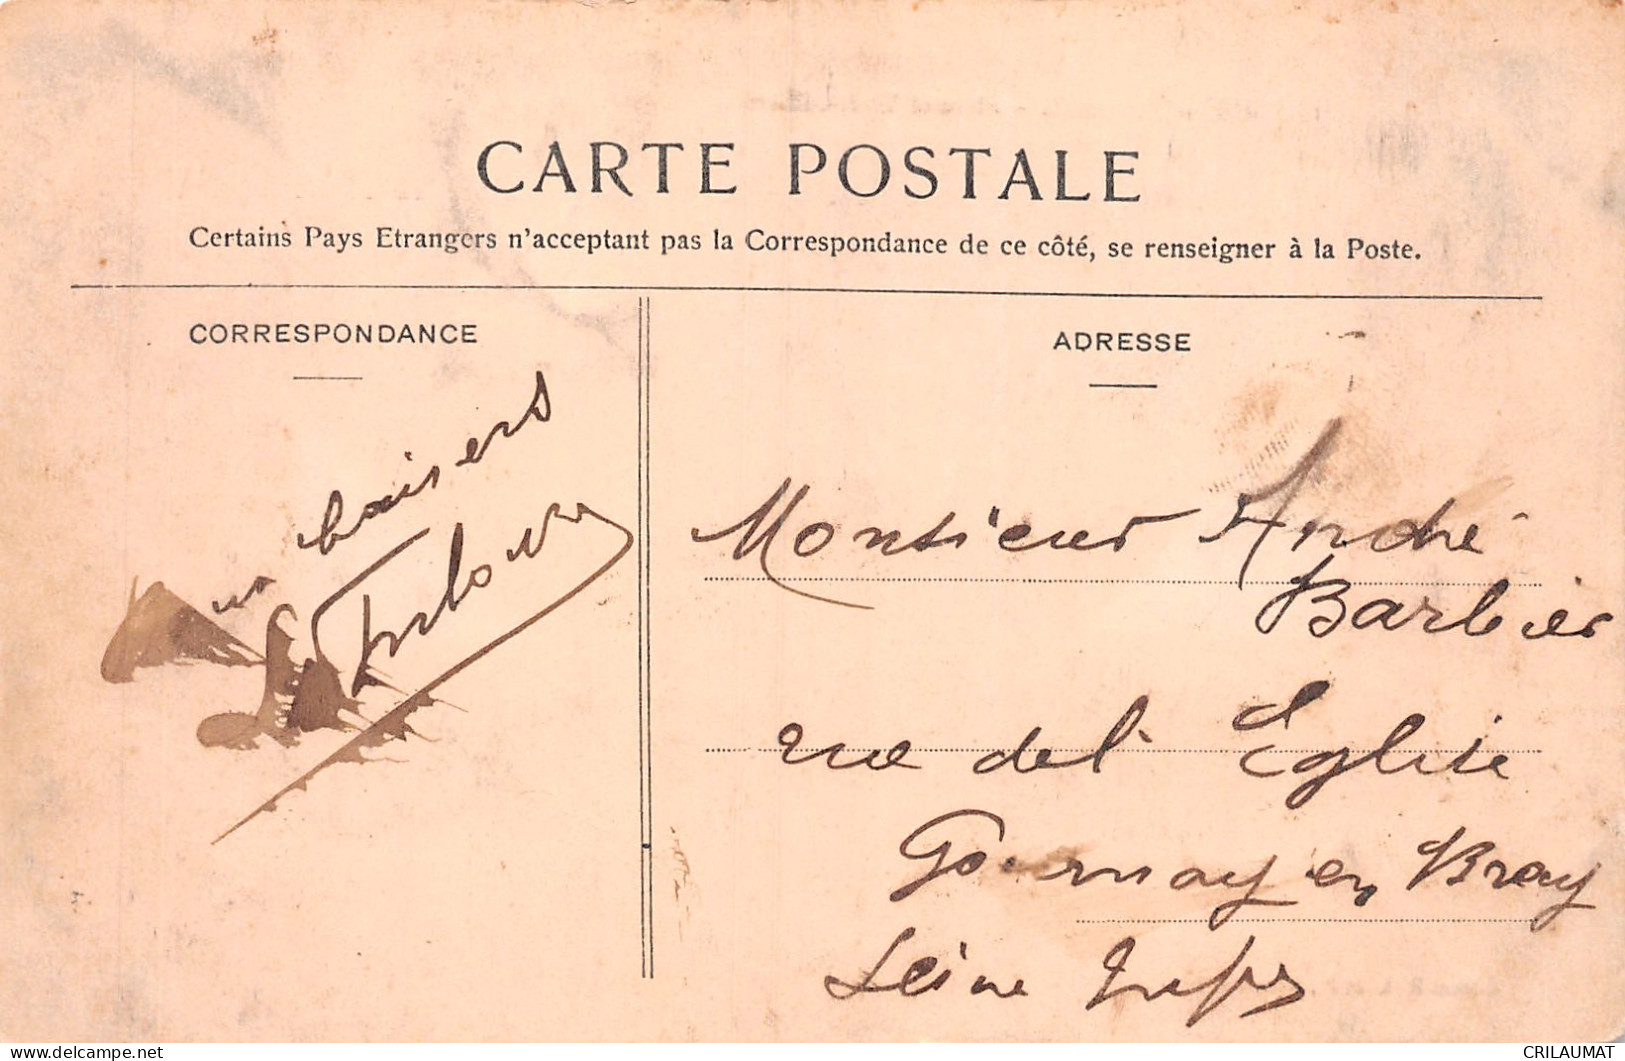 CARTE POSTALE
Certains Pays Etrangers n'acceptant pas la Correspondance de ce côté, se renseigner à la Poste.
CORRESPONDANCE
ADRESSE
baisers
Monsieur André
Barbier
rue de l'Eglise
Gournay en Bray
Seine Infre
CRILAUMAT